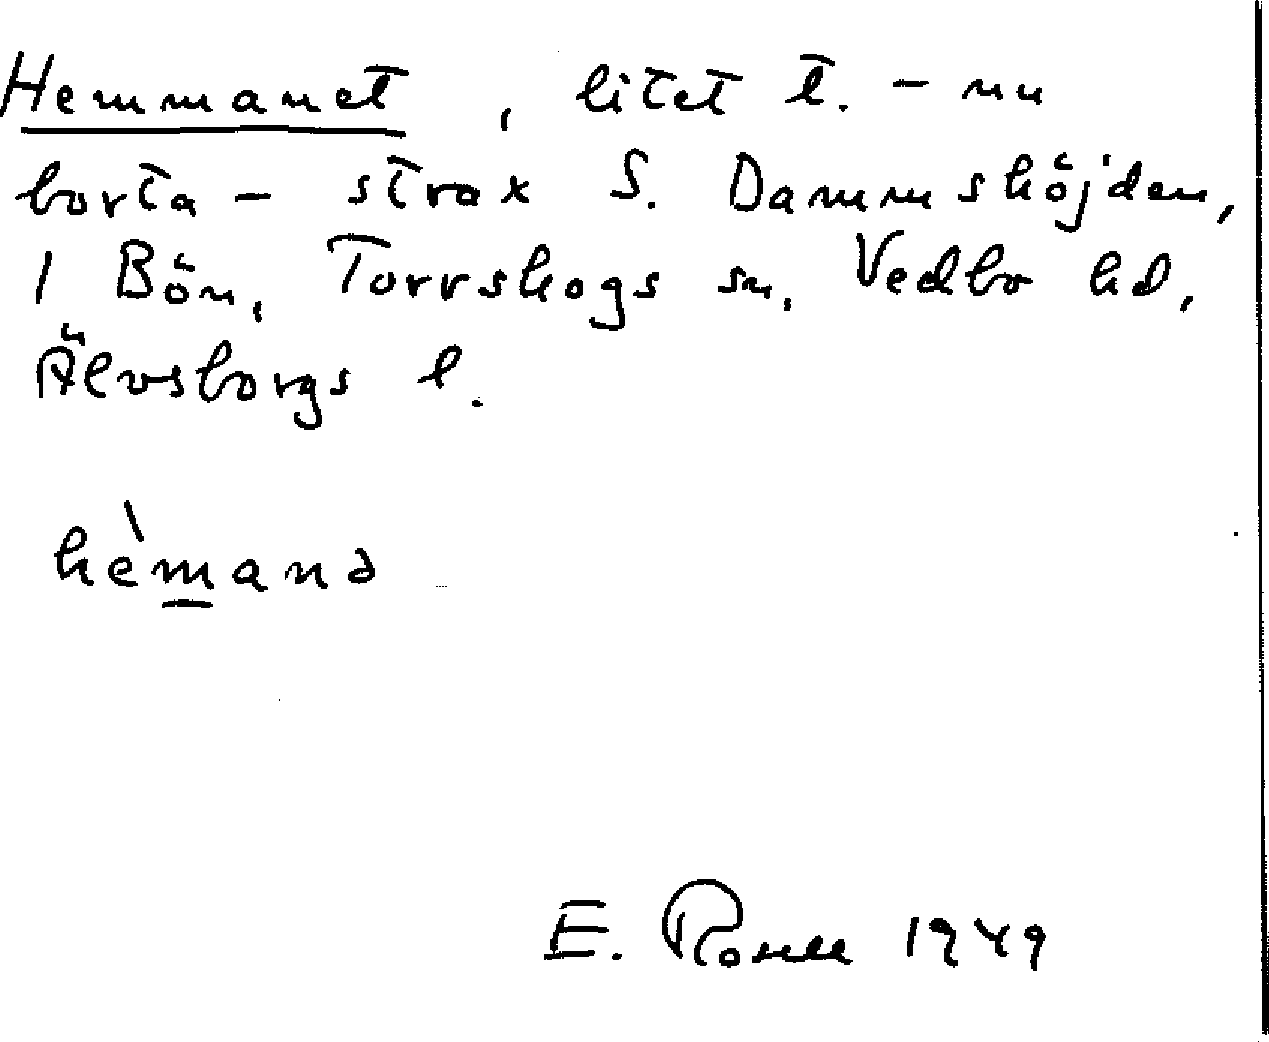 Hemmanet, litet t. - nu
borta - strax S. Dammshöjden,
1 Bön, Torrskogs sn, Vedbo hd,
Älvsborgs l.
hèmanə
E. 1949